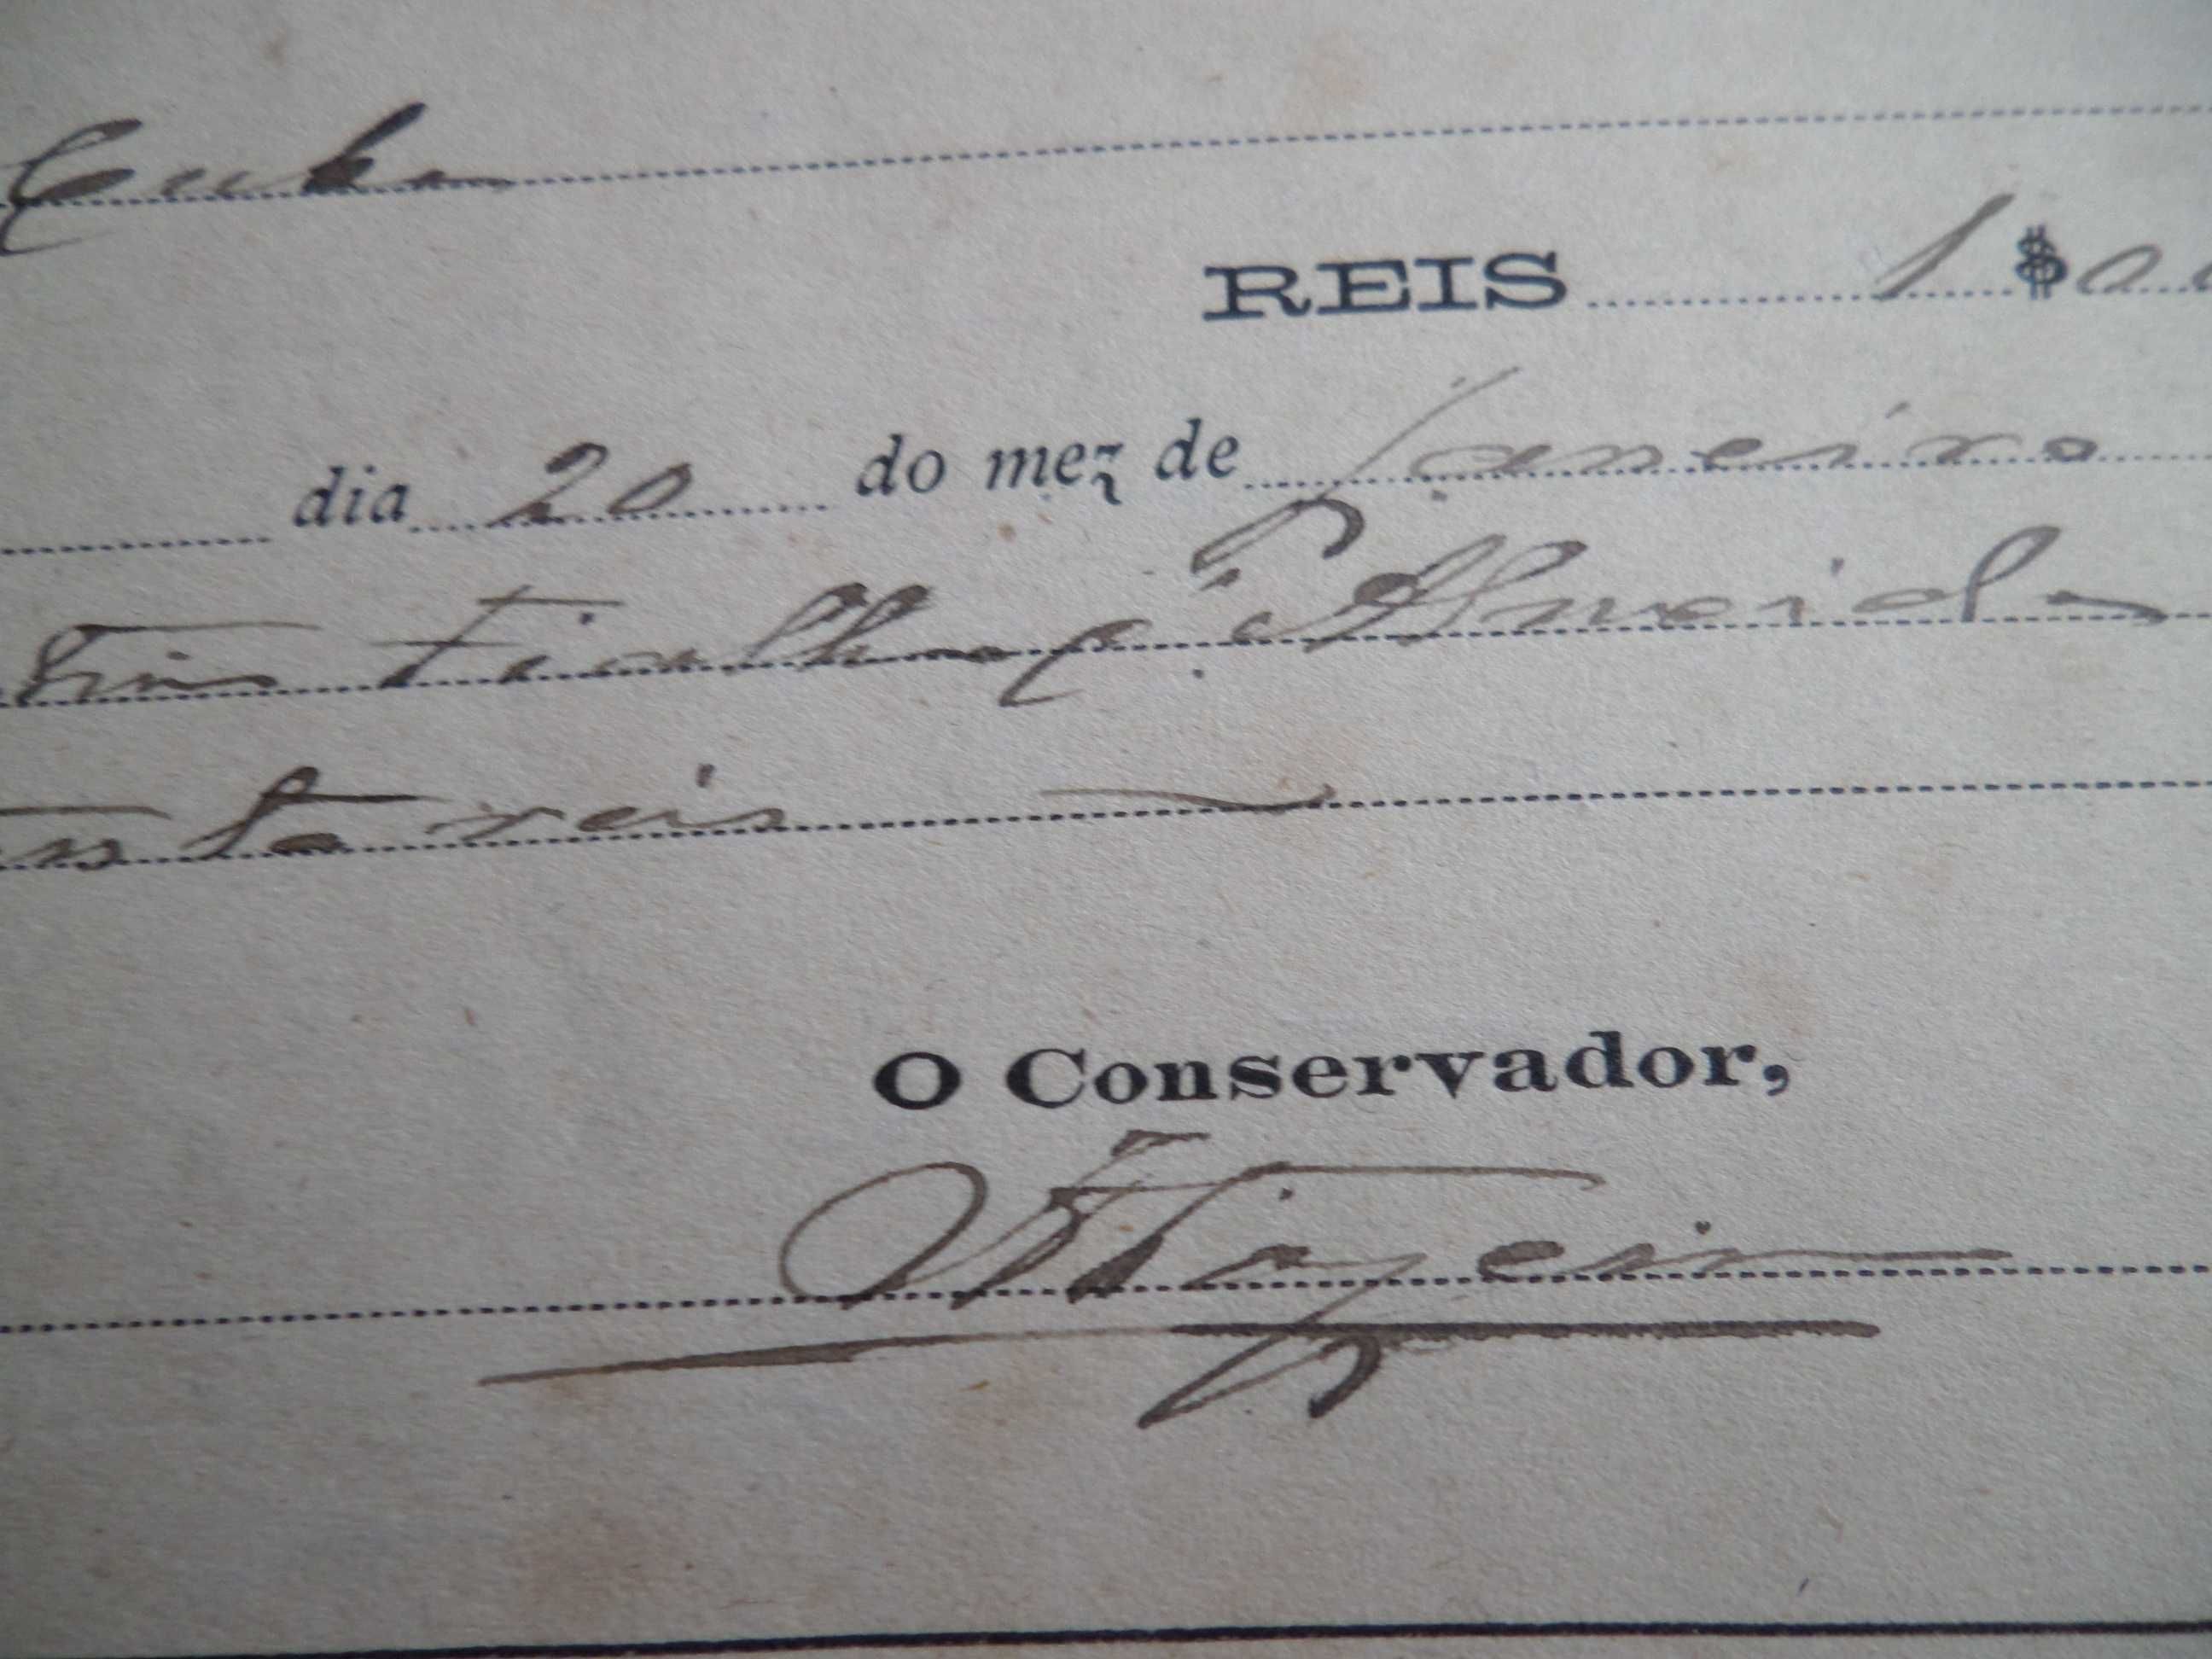 Cuba
REIS 1$0
dia 20 do mez de Janeiro
Fialho d'Almeida
nta reis
O Conservador,